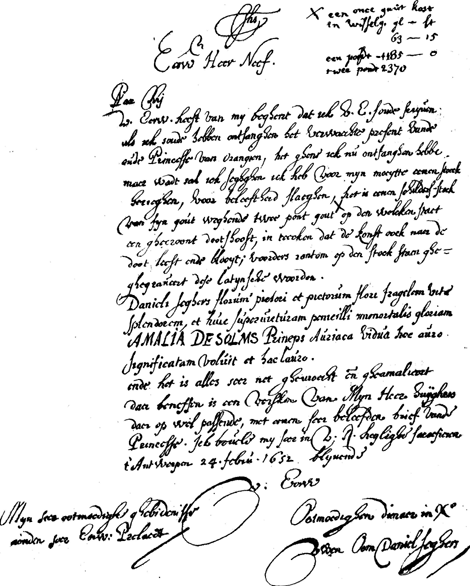 Jhs
X een once gout kost
in wisselg. gl - st
63 - 15
een pondt - 1185 - 0
twee pont 2370
Eerw Heer Neef.
Pax Chri
V. Eerw. heeft van my begheert dat ick V. E. soude scryven
als ick soude hebben ontfanghen het verwachte present vande
oude Princesse van orangien, het ghene ick nu ontfanghen hebbe
maer wadt sal ick segghen ick heb voor myn moeyte eenen stock
gecreghen, voor beleeftheid slaeghen, het is eenen schilders stock
van fyn gout weghende twee pont gout op den welcken staet
een ghecroont dootshooft, in teecken dat de konst oock naer de
doot leeft ende bloeyt; voorders rontom op den stock staen ghe-
ghegraveert dese latynsche woorden.
Danieli Seghers florum pictori et pictorum flori fragilem vitæ
splendorem, et huic suppeditatum penicilli immortalis gloriam
AMALIA DE SOLMS Princeps Auriaca Vidua hoc auro
significatam voluit et hac lauro.
ende het is alles seer net ghewrocht en gheamalieert
daer beneffen is een Verssken Van Myn Heer Huyghens
daer op wel passende, met eenen seer beleefden brief vande
Princesse. Ick bevele my seer in V. R. heylighe sacrificien
t'Antwerpen 24. febru. 1652 blyvende
V. Eerw
Myn seer ootmoedighe ghebiedenisse
aenden seer Eerw: Prelaet
Ootmoedighen dienaer in Xo
Uwen Oom Daniel Seghers